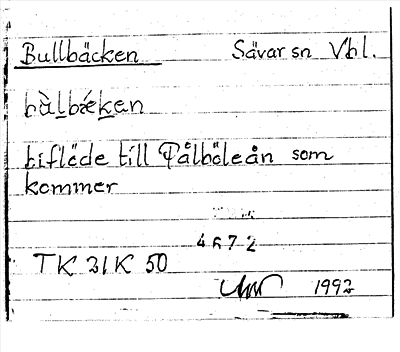 Bullbäcken Sävar sn Vbl.
bùlbǽkan
tiflöde till Pålböleån som
kommer
4672
TK 21K 50
1992